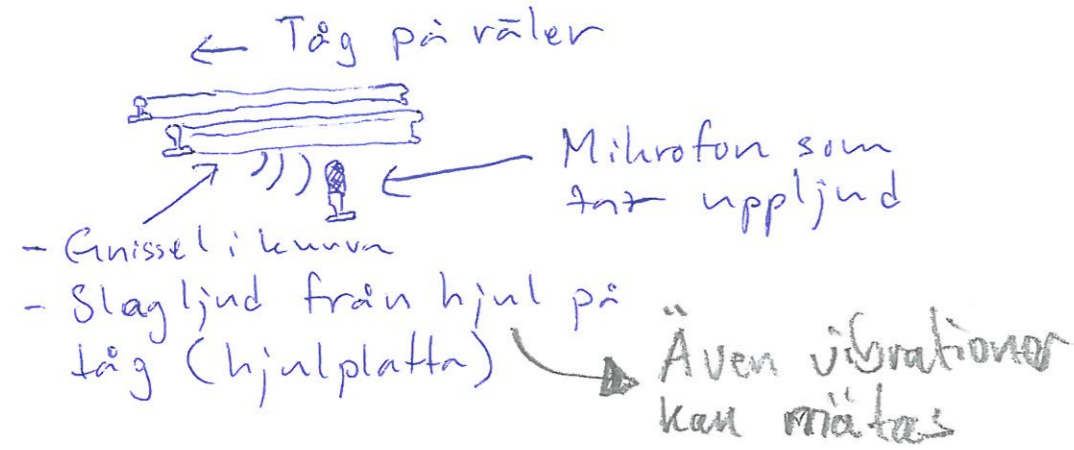 ← Tåg på räler
Mikrofon som
tar upp ljud
- Gnissel i kurva
- Slagljud från hjul på
tåg (hjulplatta)
Även vibrationer
kan mätas